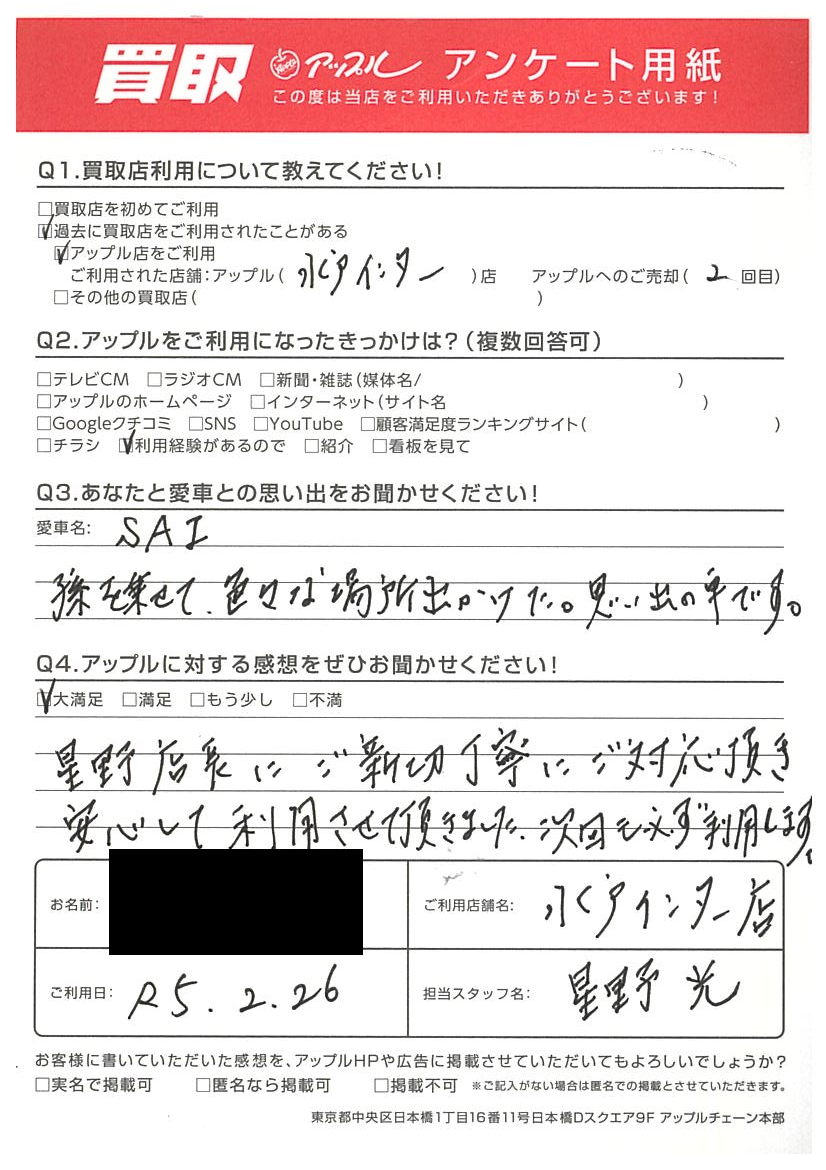 買取 アップル アンケート用紙
この度は当店をご利用いただきありがとうございます！
Q1.買取店利用について教えてください！
□買取店を初めてご利用
☑過去に買取店をご利用されたことがある
☑アップル店をご利用
ご利用された店舗：アップル（ 水戸インター ）店 アップルへのご売却（ 2 回目）
□その他の買取店（ ）
Q2.アップルをご利用になったきっかけは？（複数回答可）
□テレビCM □ラジオCM □新聞・雑誌（媒体名/ ）
□アップルのホームページ □インターネット（サイト名 ）
□Googleクチコミ □SNS □YouTube □顧客満足度ランキングサイト（ ）
□チラシ ☑利用経験があるので □紹介 □看板を見て
Q3.あなたと愛車との思い出をお聞かせください！
愛車名： SAI
孫を乗せて、色々な場所出かけた。思い出の車です。
Q4.アップルに対する感想をぜひお聞かせください！
☑大満足 □満足 □もう少し □不満
星野店長にご新切丁寧にご対応頂き
安心して利用させて頂きました、次回も必ず利用します。
お名前： ご利用店舗名： 水戸インター店
ご利用日： R5.2.26 担当スタッフ名： 星野 光
お客様に書いていただいた感想を、アップルHPや広告に掲載させていただいてもよろしいでしょうか？
□実名で掲載可 □匿名なら掲載可 □掲載不可 ※ご記入がない場合は匿名での掲載とさせていただきます。
東京都中央区日本橋1丁目16番11号日本橋Dスクエア9F アップルチェーン本部